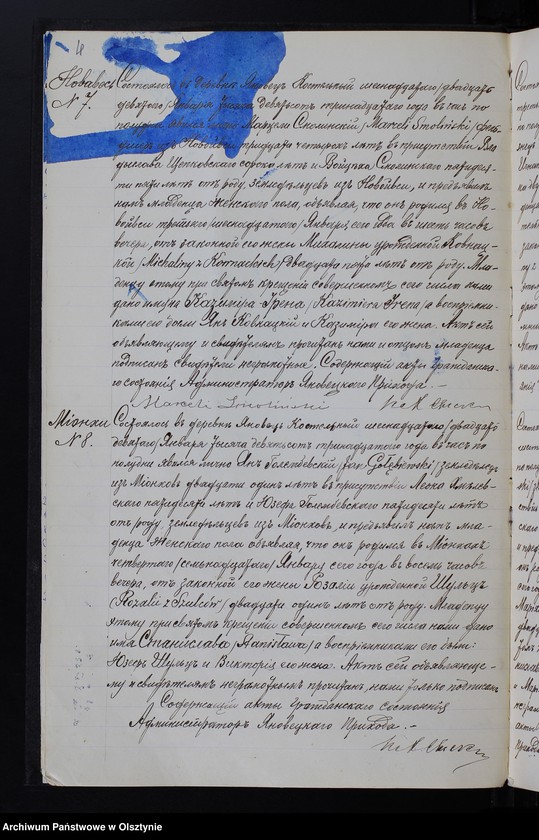 4
Нововось
N 7.
Состоялось в деревне Яновец Костельный шенадцатаго/двадцать
девятаго/Января тысяча девятьсот тринадцатаго года в час по
полудни явился лично Марцели Смолинский /Marceli Smoliński/
из Нововси тридцати четырех лет в присутствии
Щепковского сорока лет и Войцеха Смолинского пятидеся-
ти пяти лет от роду, земледельцев из Нововси, и предъявил
нам младенца женского пола, объявляя, что он родился в Но-
вовси третьяго/шенадцатаго/Января сего года в шесть часов
вечера, от законной его жены Михалины урожденной Ковнац-
кой /Michaliny z Kownackich/ двадцати пяти лет от роду. Мла-
денцу этому при святом крещении совершенном сего числа нами
дано имя Казимира-Ирена /Kazimiera Irena/ а восприемни-
ками его были Ян Ковнацкий и Казимира его жена. Акт сей
объявляющему и свидетелям прочитан нами и отцом младенца
подписан свидетели неграмотные. Содержащий акты гражданска-
го состояния Администратор Яновецкого Прихода.-
Marceli Smolinski
Мионки
N 8.
Состоялось в деревне Яновец Костельный шенадцатаго/двадцать
девятаго/Января тысяча девятьсот тринадцатаго года в час по
полудни явился лично Ян Голембевский /Jan Gołębiewski/ земледелец
из Мионков двадцати один лет в присутствии Леона
пятидесяти лет и Юзефа Голембевского пятидесяти лет
от роду, земледельцев из Мионков, и предъявил нам мла-
денца женского пола объявляя, что он родился в Мионках
четвертого/семнадцатаго/Января сего года в восемь часов
вечера, от законной его жены Розалии урожденной Шульц
/Rozalii z Szulców/ двадцати один лет от роду. Младенцу
этому при святом крещении совершенном сего числа нами дано
имя Станислава /Stanisława/ а восприемниками его были:
Юзеф Шульц и Виктория его жена. Акт сей объявляюще-
му и свидетелям неграмотным прочитан, нами только подписан
Содержащий акты гражданского состояния
Администратор Яновецкого Прихода.-
Archiwum Państwowe w Olsztynie